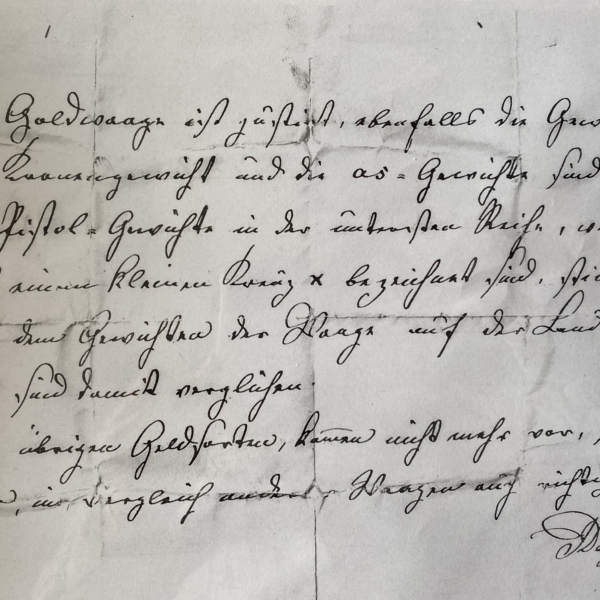 Goldwaage ist justirt, ebenfalls die Gew
Kronengewicht und die as=Gewichte sind
Pistol=Gewichte in der untersten Reihe, w
einem kleinen Kreuz x bezeichnet sind, stim
dem Gewichten der Waage auf der Land
sind damit verglichen.
übrigen Geldsorten, kommen nicht mehr vor,
im Vergleich andere Waagen auch richtig